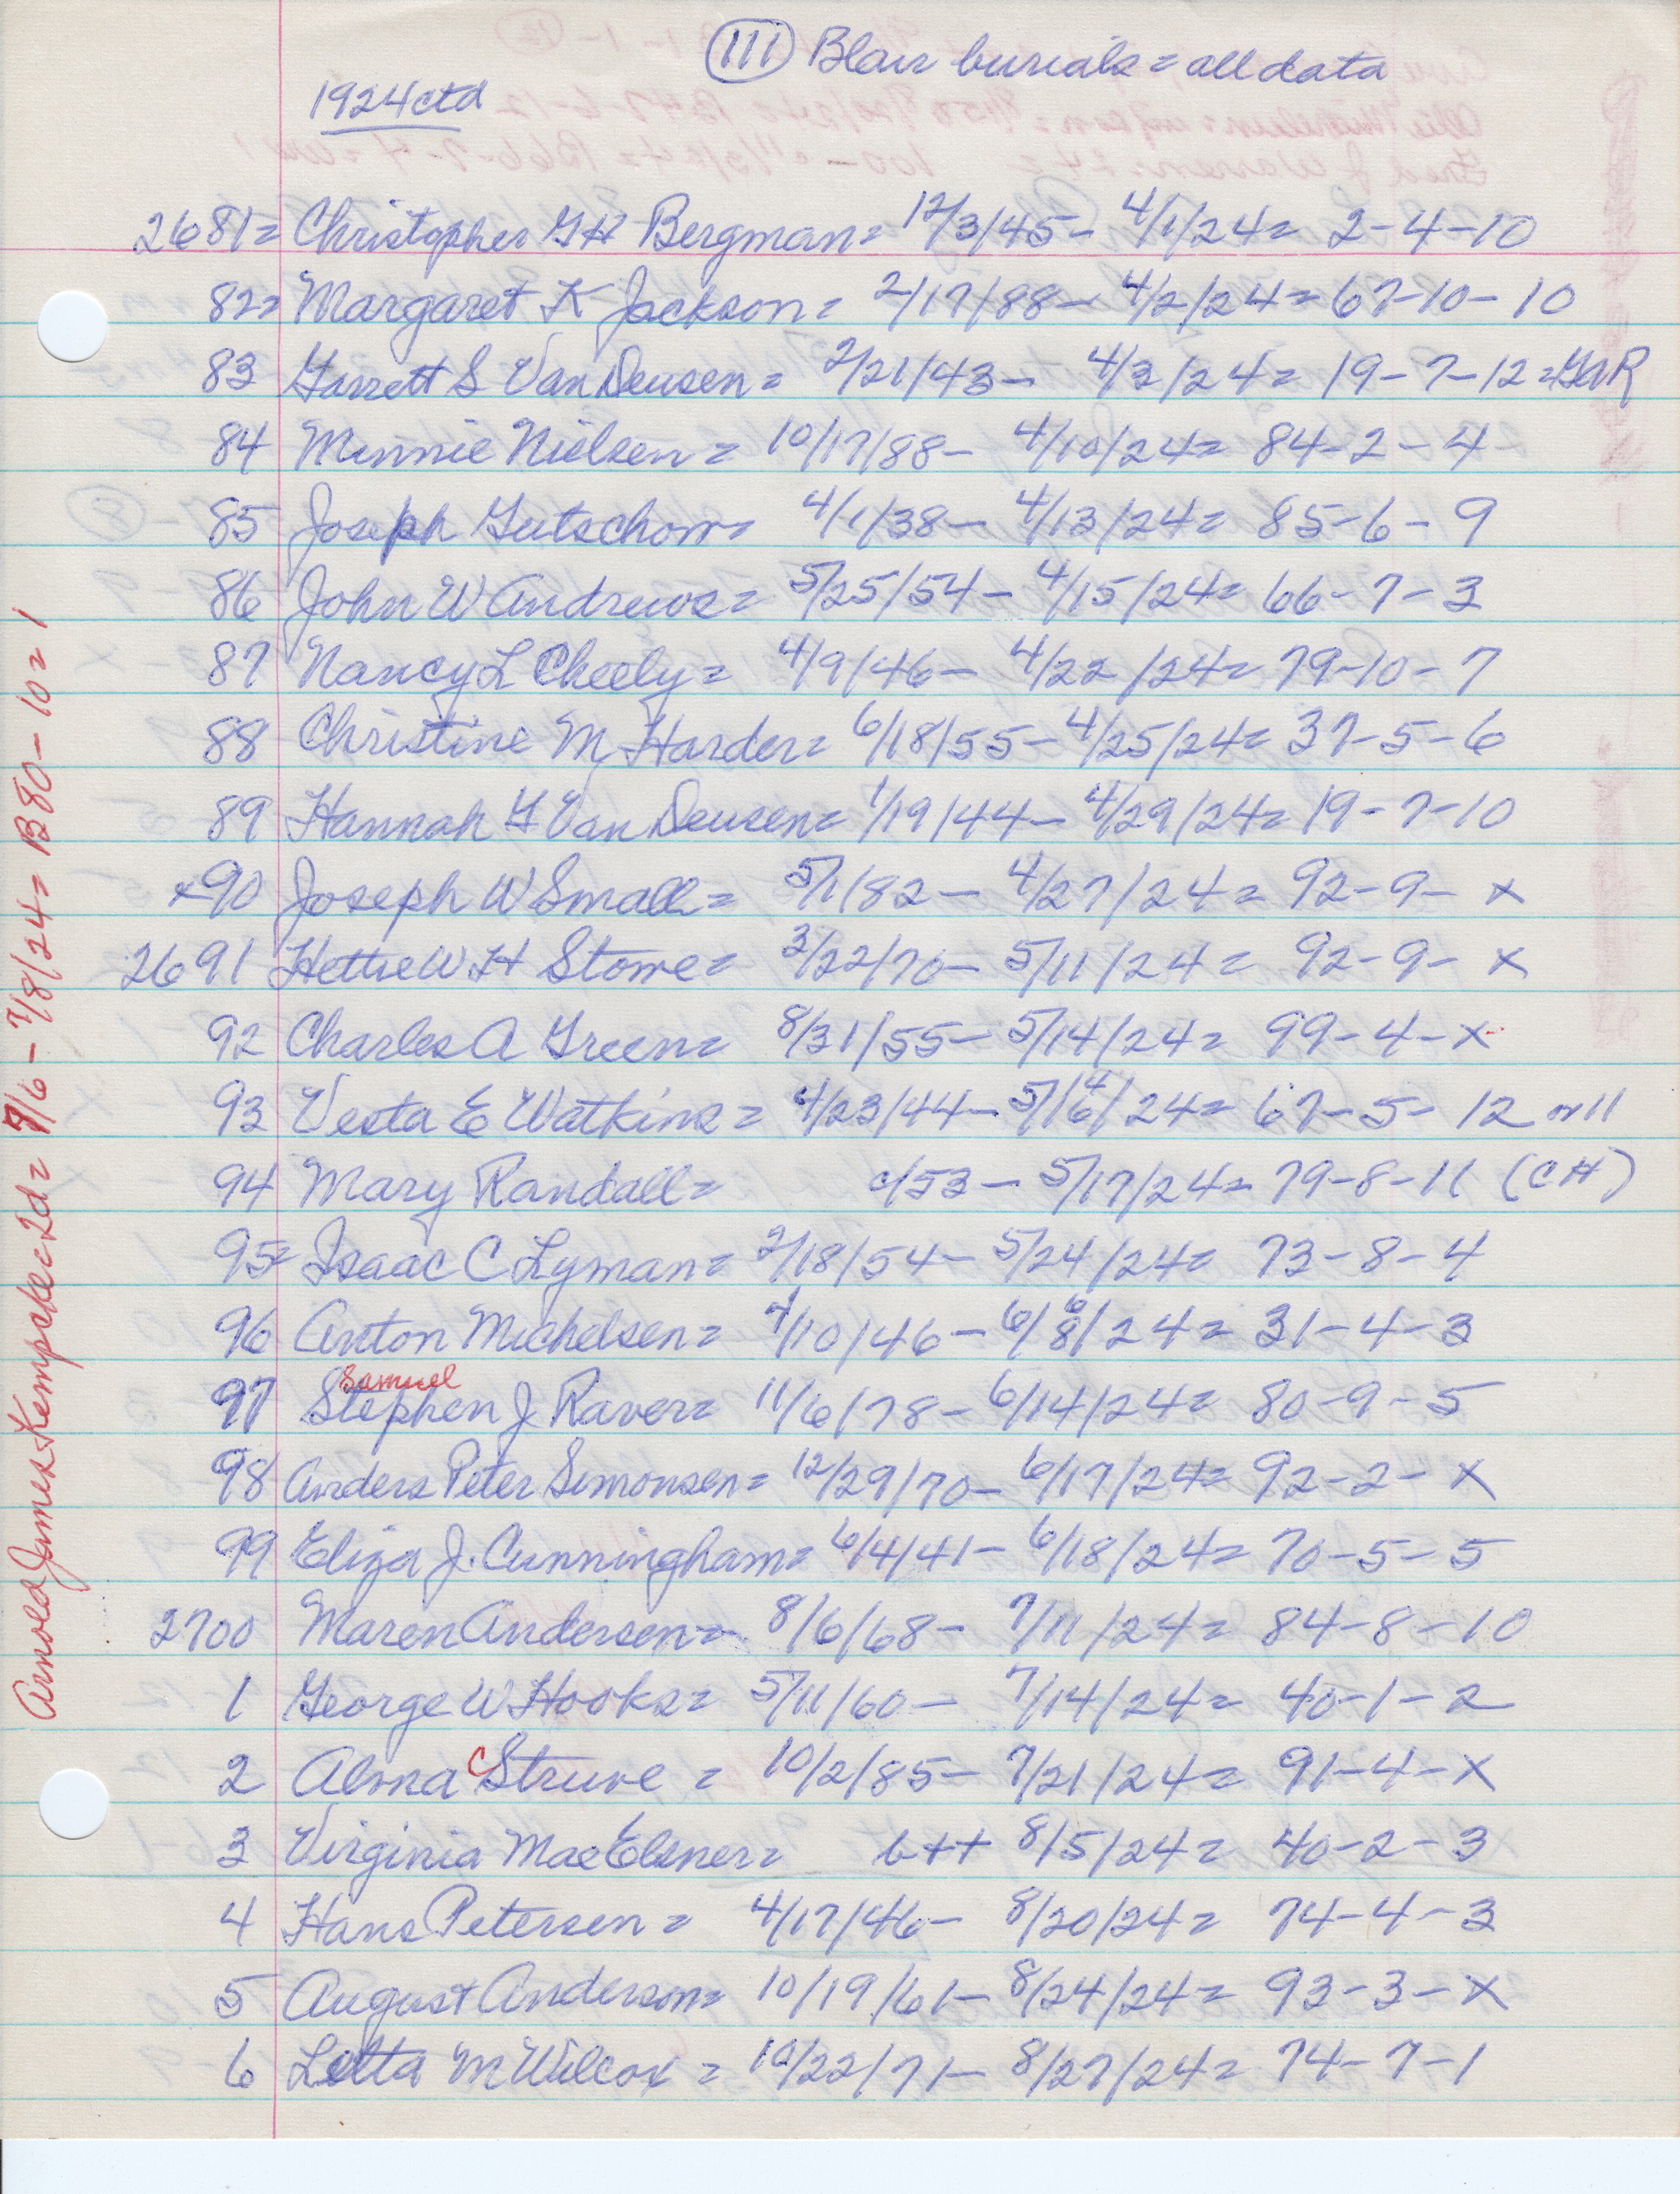 (111) Blair burials = all data
1924 ctd
2681= Christopher GH Bergman= 12/3/45- 4/1/24= 2-4-10
82= Margaret K Jackson= 2/17/88- 4/2/24= 67-10-10
83 Garrett S VanDeusen= 2/21/43- 4/3/24= 19-7-12=GAR
84 Minnie Nielsen= 10/17/88- 4/10/24= 84-2-4
85 Joseph Gutschow= 4/1/38- 4/13/24= 85-6-9
86 John W Andrews= 5/25/54- 4/15/24= 66-7-3
87 Nancy L Cheely= 4/9/46- 4/22/24= 79-10-7
88 Christine M Harder= 6/18/55- 4/25/24= 37-5-6
89 Hannah G VanDeusen= 1/19/44- 4/29/24= 19-7-10
x90 Joseph W Small= 5/1/82- 4/27/24= 92-9-x
2691 Hettie W H Stowe= 3/22/70- 5/11/24= 92-9-x
92 Charles A Green= 8/31/55- 5/14/24= 99-4-x
93 Vesta E Watkins= 4/23/44- 5/16/24= 67-5-12 or 11
94 Mary Randall= c/53- 5/17/24= 79-8-11 (CH)
95= Isaac C Lyman= 2/18/54- 5/24/24= 73-8-4
96 Anton Michelsen= 7/10/46- 6/8/24= 31-4-3
Samuel
97 Stephen J Raver= 11/6/78- 6/14/24= 80-9-5
98 Anders Peter Simonsen= 12/29/70- 6/17/24= 92-2-x
99 Eliza J. Cunningham= 6/4/41- 6/18/24= 70-5-5
2700 Maren Andersen= 8/6/68- 7/11/24= 84-8-10
1 George W Hooks= 5/11/60- 7/14/24= 40-1-2
2 Alma C Struve= 10/2/85- 7/21/24= 91-4-x
3 Virginia Mae Elsner= b++ 8/5/24= 40-2-3
4 Hans Petersen= 4/17/46- 8/20/24= 74-4-3
5 August Anderson= 10/19/61- 8/24/24= 93-3-x
6 Letta M Wilcox= 10/22/71- 8/27/24= 74-7-1
Arnold James Kempcke 2d= 7/6- 7/8/24= B80-10=1